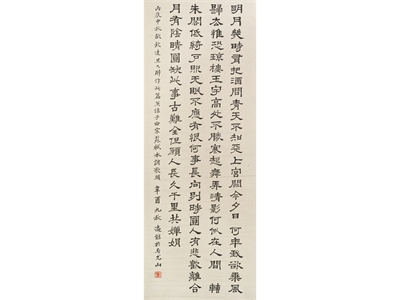 明月幾時有把酒問青天不知天上宮闕今夕是何年我欲乘風
歸去惟恐瓊樓玉宇高處不勝寒起舞弄清影何似在人間轉
朱閣低綺戶照無眠不應有恨何事長向別時圓人有悲歡離合
月有陰晴圓缺此事古難全但願人長久千里共嬋娟
丙辰中秋歡飲達旦大醉作此篇兼懷子由宋蘇軾水調歌頭 辛酉九秋